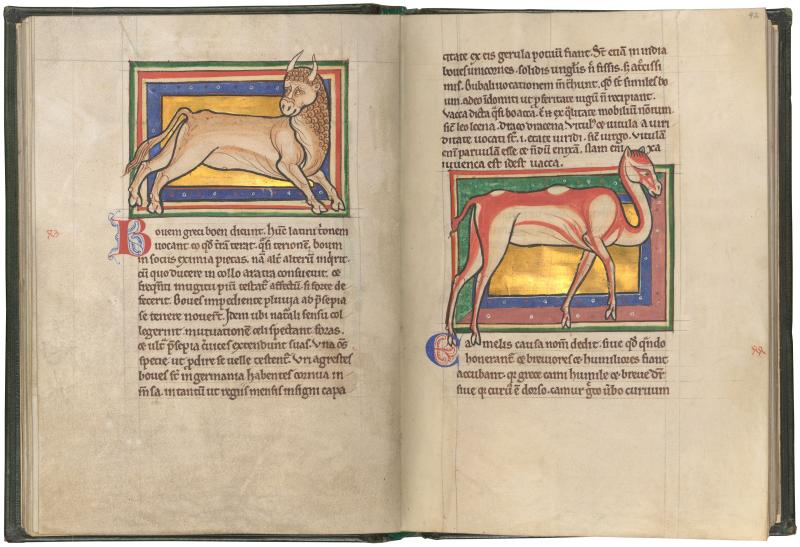 Bouem greci boen dicunt. hūc latini trionem
uocant eo qđ trā terat. q̄si terionem. boum
in sociis eximia pietas. nā alt̄ alterū inq̇rit.
cū quo ducere in collo aratra consueuit. et
freq̄nti mugitu piū testat᷑ affectū. si forte de
fecerit. Boues impendente pluuia ad p̄sepia
se tenere nouerīt. Idem ubi nat᷑ali sensu col
legerint mutuationem celi spectant foras.
et ult᷑ p̄sepia c̄uices extendunt suas. una oīs
specie. ut p̄dire se uelle testent᷑. Uri agrestes
boues st̄ in germania habentes cornua in
m̄sa. in tantū ut regiis mensis insigni capa
citate ex eis gerula potuū fiant. St̄ etiā in india
boues unicornes. solidis unglis n̄ fissis. s; atrcissi
mis. Bubali uocationem m̄thunt. qđ st̄ similes bo
um. adeo īdomiti ut p̄ feritate iugū n̄ recipiant.
Vacca dicta q̄si boacca. Ē n̄ ex q̄litate mobiliū noīum.
sic̄ leo leena. draco dracena. Vitul᷒ et uitula a uiri
ditate uocati st̄. i. etate uiridi. sic̄ uirgo. Vitulā
ēm paruulam esse et n̄dū enixā. Nam enixa
iuuenca est idest uacca.
Camelis causa nom̄ dedit. siue qđ q̄ndo
honerant᷑ ut breuiores et humiliores fiant
accubant. q̇a grece cami humile et breue dr̄.
siue q̇a curu᷒ ē dorso. camur g᷑co ūbo curuum